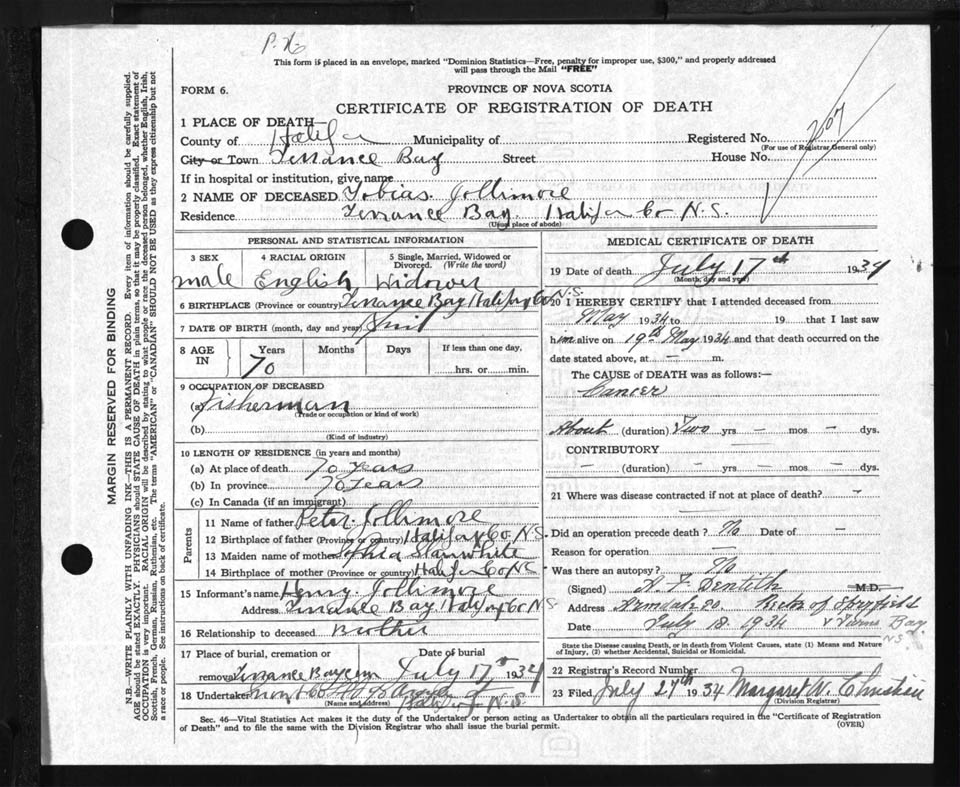 P. H.
This form is placed in an envelope, marked "Dominion Statistics—Free, penalty for improper use, $300," and properly addressed
will pass through the Mail "FREE"
FORM 6. PROVINCE OF NOVA SCOTIA
CERTIFICATE OF REGISTRATION OF DEATH
1 PLACE OF DEATH—
County of Halifax Municipality of Registered No.
(For use of Registrar General only)
City or Town Terrance Bay Street House No.
If in hospital or institution, give name
2 NAME OF DECEASED Tobias. Jollimore
Residence Terrance Bay. Halifax Co N.S.
(Usual place of abode)
PERSONAL AND STATISTICAL INFORMATION
3 SEX 4 RACIAL ORIGIN 5 Single, Married, Widowed or Divorced. (Write the word)
male English Widower
6 BIRTHPLACE (Province or country) Terrance Bay Halifax Co N.S.
7 DATE OF BIRTH (month, day and year) April
8 AGE IN Years Months Days If less than one day,
70 ....hrs. or......min.
9 OCCUPATION OF DECEASED
(a) Fisherman
(Trade or occupation or kind of work)
(b)
(Kind of industry)
10 LENGTH OF RESIDENCE (in years and months)
(a) At place of death 70 Years
(b) In province 70 Years
(c) In Canada (if an immigrant)
Parents
11 Name of father Peter Jollimore
12 Birthplace of father (Province or country) Halifax Co. N.S.
13 Maiden name of mother Sophia Slaunwhite
14 Birthplace of mother (Province or country) Halifax Co NS
15 Informant's name Henry Jollimore
Address Terrance Bay Halifax Co N.S.
16 Relationship to deceased Brother
17 Place of burial, cremation or Date of burial
removal Terrance Bay cem July 17th 1934
18 Undertaker
(Name and address) Halifax N.S.
MEDICAL CERTIFICATE OF DEATH
19 Date of death July 17th 1934
(Month, day and year)
20 I HEREBY CERTIFY that I attended deceased from
May 1934 to 19 that I last saw
him alive on 19th May 1934 and that death occurred on the
date stated above, at — m.
The CAUSE of DEATH was as follows:—
Cancer
About (duration) Two yrs — mos — dys.
CONTRIBUTORY —
— (duration) — yrs — mos — dys.
21 Where was disease contracted if not at place of death? —
Did an operation precede death? No Date of —
Reason for operation —
Was there an autopsy? No
(Signed) A F Dentith M.D.
Address Armdale PO. Rector of Spryfield
Date July 18. 1934 & Terns Bay
N S
State the Disease causing Death, or in death from Violent Causes, state (1) Means and Nature
of Injury, (2) whether Accidental, Suicidal or Homicidal.
22 Registrar's Record Number
23 Filed July 27th 1934 Margaret W. Christian
(Division Registrar)
Sec. 46—Vital Statistics Act makes it the duty of the Undertaker or person acting as Undertaker to obtain all the particulars required in the "Certificate of Registration
of Death" and to file the same with the Division Registrar who shall issue the burial permit. (OVER)
MARGIN RESERVED FOR BINDING
N.B.—WRITE PLAINLY WITH UNFADING INK—THIS IS A PERMANENT RECORD. Every item of information should be carefully supplied.
AGE should be stated EXACTLY. PHYSICIANS should STATE CAUSE OF DEATH in plain terms, so that it may be properly classified. Exact statement of
OCCUPATION is very important. RACIAL ORIGIN will be described by stating to what people or race the deceased person belonged, whether English, Irish,
Scottish, French, German, Russian, Ruthenian, etc. The terms "AMERICAN" or "CANADIAN" SHOULD NOT BE USED as they express citizenship but not
a race or people. See instructions on back of certificate.